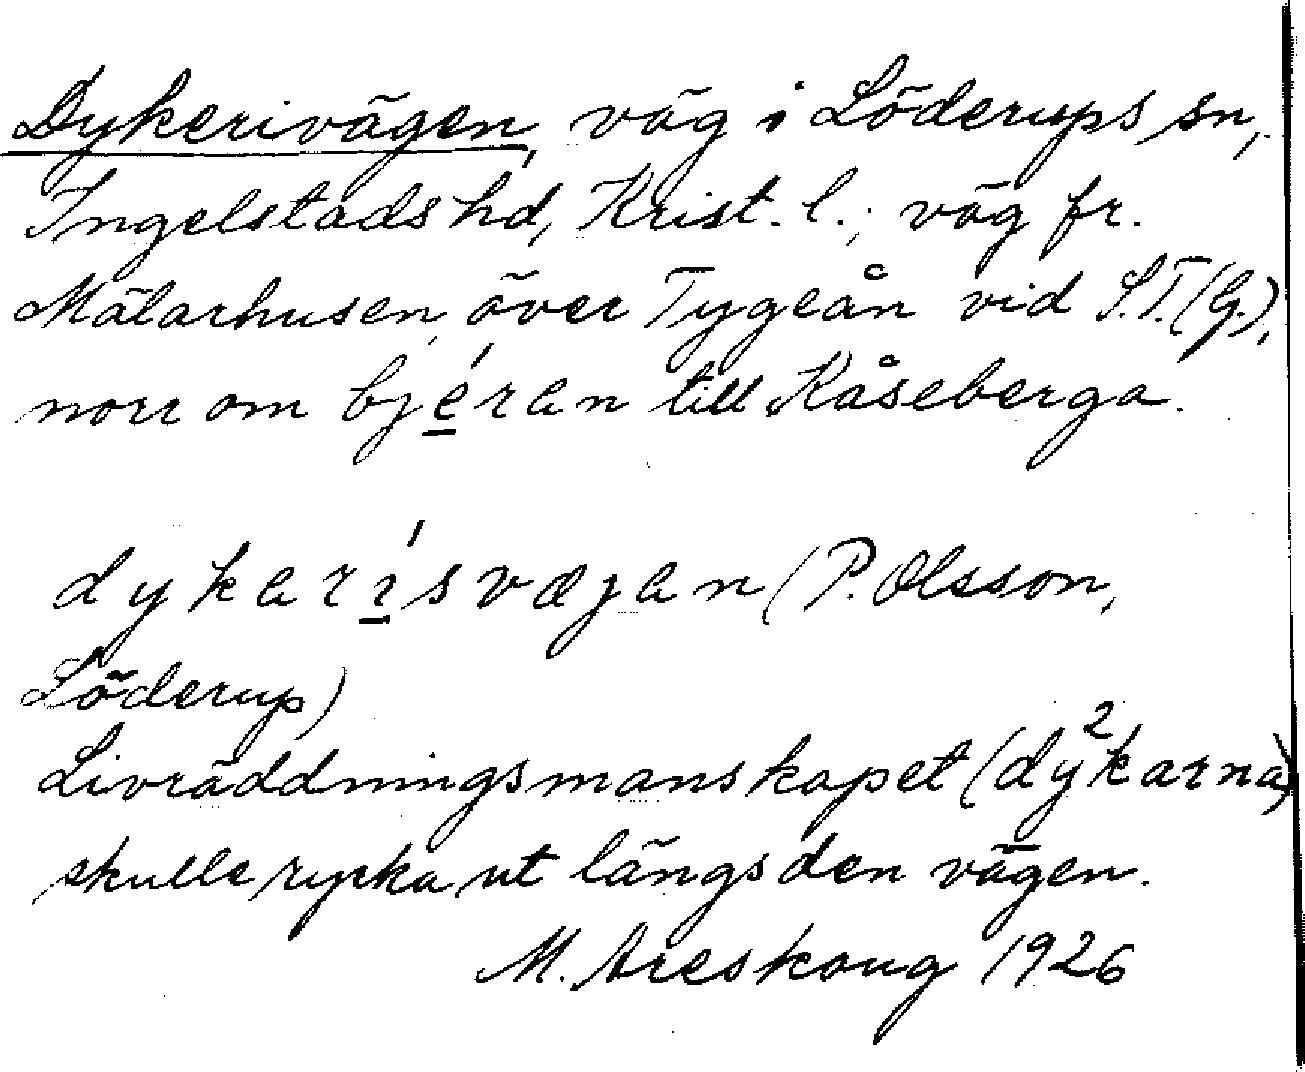 Dykerivägen, väg i Löderups sn,
Ingelstads hd, Krist. l.; väg fr.
Mälarhusen över Tygeån vid S.T.(G.),
norr om bjéran till Kåseberga.
dykarísvæjan (P. Olsson,
Löderup)
Livräddningsmanskapet (dy²karna)
skulle rycka ut längs den vägen.
M. Areskoug 1926